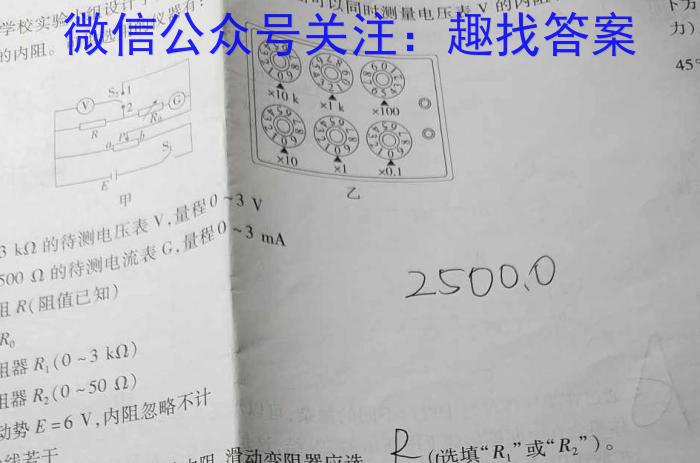 可以同时测量电压表V的内阻
学校实验小组设计了
微信公众号关注：趣找答案
的内阻。
下方
力)
45°
S₂ 1
2
V
G
R₀
R
a P b
S₁
E
甲
×10 k
×1 k
×100
×10
×1
×0.1
乙
3 kΩ的待测电压表V,量程0~3 V
500 Ω的待测电流表G,量程0~3 mA
阻R(阻值已知)
R₀
阻器R₁(0~3 kΩ)
阻器R₂(0~50 Ω)
动势E=6 V,内阻忽略不计
线若干
2500.0
滑动变阻器应选 R (选填“R₁”或“R₂”)。